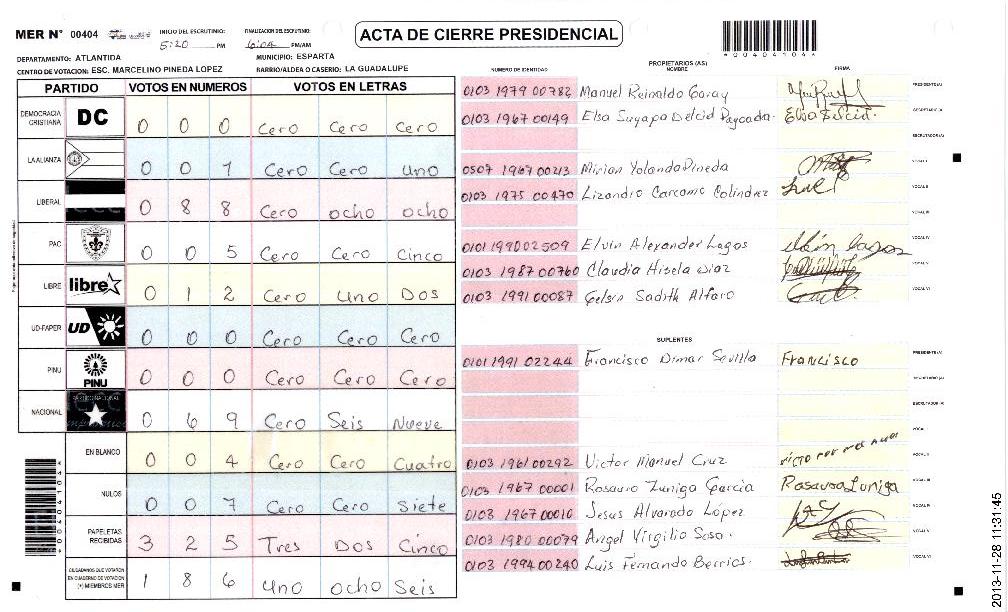 MER N° 00404
INICIO DEL ESCRUTINIO: 5:20 PM
FINALIZACION DEL ESCRUTINIO: 6:04 PM/AM
ACTA DE CIERRE PRESIDENCIAL
*00404104*
DEPARTAMENTO: ATLANTIDA MUNICIPIO: ESPARTA
CENTRO DE VOTACION: ESC. MARCELINO PINEDA LOPEZ BARRIO/ALDEA O CASERIO: LA GUADALUPE
PARTIDO VOTOS EN NUMEROS VOTOS EN LETRAS
DEMOCRACIA CRISTIANA DC 0 0 0 Cero Cero Cero
LA ALIANZA 0 0 1 Cero Cero Uno
LIBERAL 0 8 8 Cero ocho ocho
PAC 0 0 5 Cero Cero Cinco
LIBRE libre 0 1 2 Cero Uno Dos
UD-FAPER UD 0 0 0 Cero Cero Cero
PINU PINU 0 0 0 Cero Cero Cero
NACIONAL PARTIDO NACIONAL 0 6 9 Cero Seis Nueve
EN BLANCO 0 0 4 Cero Cero Cuatro
NULOS 0 0 7 Cero Cero Siete
PAPELETAS RECIBIDAS 3 2 5 Tres Dos Cinco
CIUDADANOS QUE VOTARON EN CUADERNO DE VOTACION (+) MIEMBROS MER 1 8 6 Uno ocho Seis
NUMERO DE IDENTIDAD PROPIETARIOS (AS) NOMBRE FIRMA
0103 1979 00782 Manuel Reinaldo Garay PRESIDENTE(A)
0103 1967 00149 Elsa Suyapa Delcid Pagoada. Elsa Delcid. SECRETARIO(A)
ESCRUTADOR(A)
0507 1967 00213 Mirian Yolanda Pineda VOCAL I
0103 1975 00470 Lizandro Carcamo Colindrez VOCAL II
VOCAL III
0101 1990 02509 Elvin Alexander Lagos VOCAL IV
0103 1987 00760 Claudia Hisela Diaz VOCAL V
0103 1991 00087 Gelsin Sadith Alfaro VOCAL VI
SUPLENTES
0101 1991 02244 Francisco Dimar Sevilla Francisco PRESIDENTE(A)
SECRETARIO (A)
ESCRUTADOR (A)
VOCAL I
0103 1961 00292 Victor Manuel Cruz VOCAL II
0103 1967 00001 Rosauro Zuniga Garcia Rosauro Zuniga VOCAL III
0103 1967 00010 Jesus Alvarado López VOCAL IV
0103 1980 00079 Angel Virgilio Sosa. VOCAL V
0103 1994 00240 Luis Fernando Berrios. VOCAL VI
*00404104*
2013-11-28 11:31:45